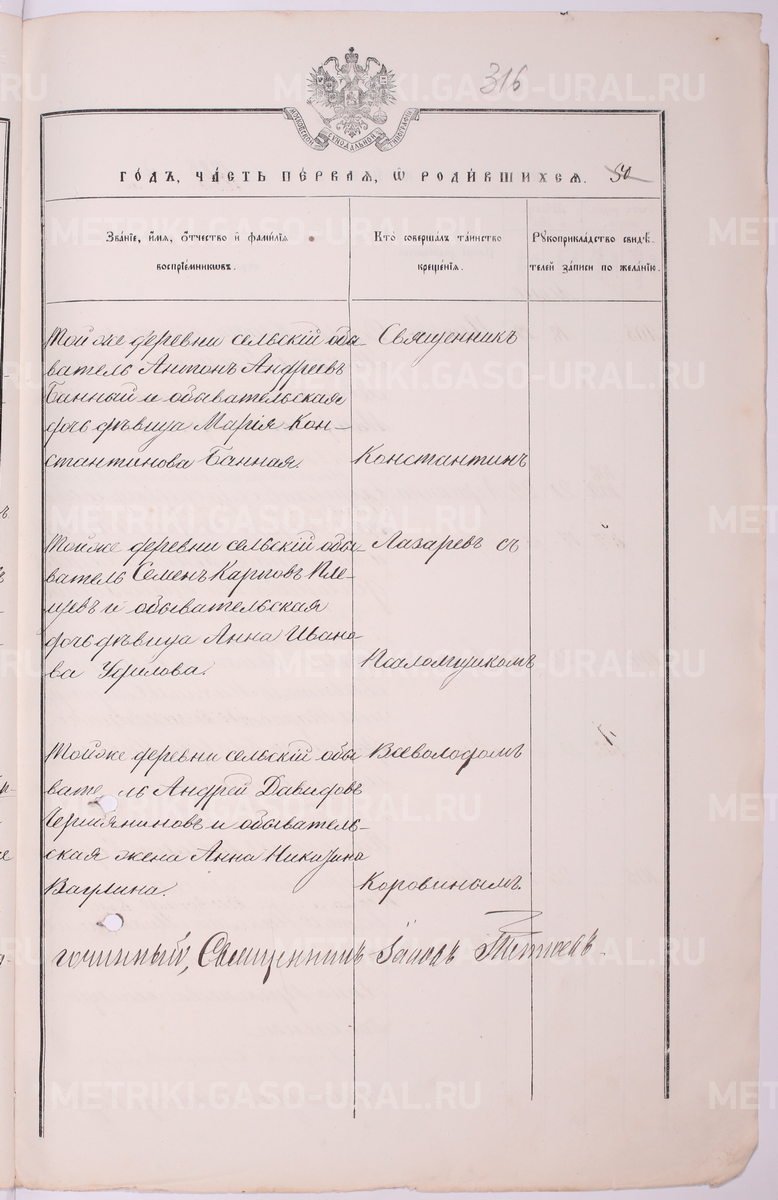 316
МОСКОВСКОЙ СѴНОДАЛЬНОЙ ТИПОГРАФІИ
ГО́ДЪ, ЧА́СТЬ ПЕ́РВАЯ, Ѿ РОДИ́ВШИХСЯ.
50
Зва́нїе, и́мя, о́тчество и̂ фами́лїя
воспрїе́мникѡвъ.
Кто̀ соверша́лъ та́инство
креще́нїя.
Рꙋкоприкла́дство свидѣ́-
телей за́писи по жела́нїю.
Той же деревни сельскій обы-
ватель Антонъ Андреевъ
Банный и обывательская
дочь дѣвица Марія Кон-
стантинова Банная.
Священникъ
Константинъ
Тойже деревни сельскій обы-
ватель Семенъ Карповъ
и обывательская
дочь дѣвица Анна Ивано
ва
Лазаревъ съ
Псаломщикомъ
Тойже деревни сельскій обы
ватель Андрей Давидовъ
и обыватель-
ская жена Анна
Ваулина.
Всеволодомъ
Коровинымъ.
гочинный, Священникъ
METRIKI.GASO-URAL.RU